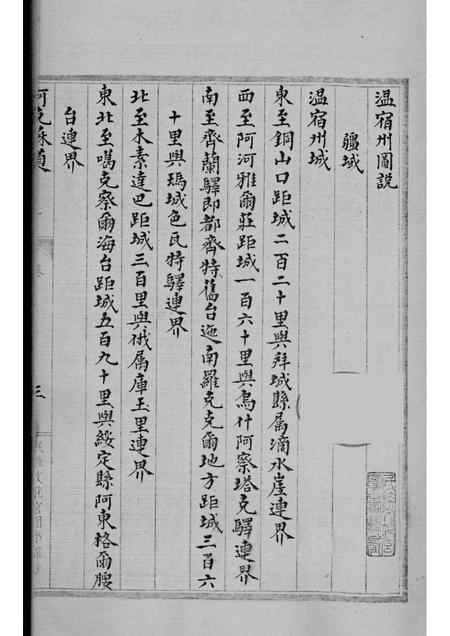 温宿州圖說
疆域
温宿州城
東至銅山口距城二百二十里與拜城縣属滴水崖連界
西至阿河雅爾莊距城一百六十里與烏什阿察塔克驛連界
南至齊蘭驛即都齊特舊台迤南羅克克爾地方距城三百六
十里與瑪城色瓦特驛連界
北至木素達巴距城三百里與俄属庫玉里連界
東北至噶克察爾海台距城五百九十里與綏定縣阿東格爾腰
台連界
三